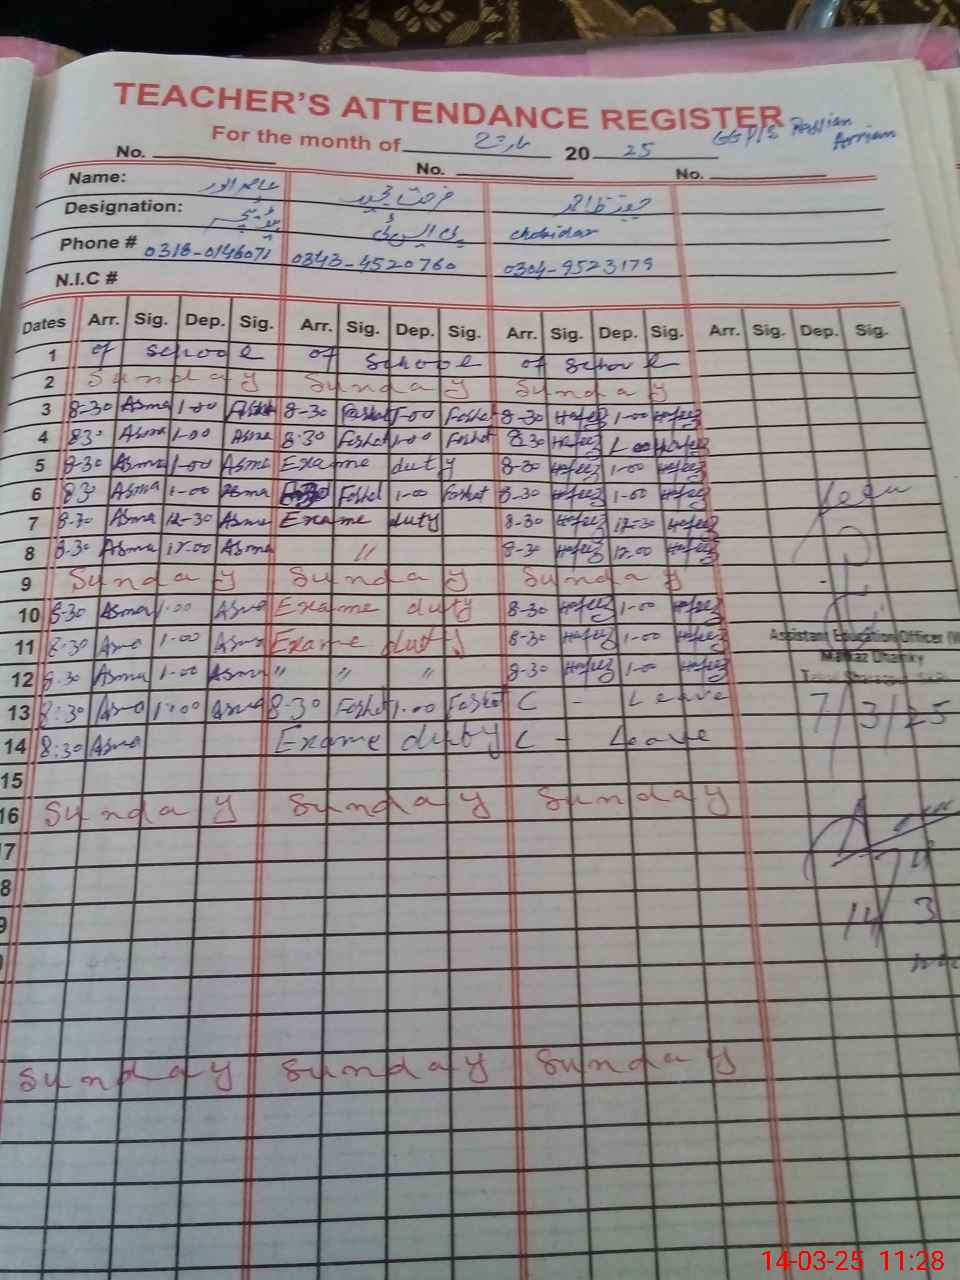 TEACHER'S ATTENDANCE REGISTER
For the month of مارچ 2025
No. No. No.
Name: فرحت مجید
Designation: chokidar
Phone # 0318-0146071 0343-4520760 0304-9523179
N.I.C #
Dates Arr. Sig. Dep. Sig. Arr. Sig. Dep. Sig. Arr. Sig. Dep. Sig. Arr. Sig. Dep. Sig.
1 of school of school of school
2 Sunday Sunday Sunday
3 8-30 Asma 1-00 8-30 1-00 8-30 Hafeez 1-00 Hafeez
4 830 Asma 1-00 Asma 8-30 1-00 8-30 Hafeez 1-00 Hafeez
5 8-30 Asma 1-00 Asma Exame duty 8-30 Hafeez 1-00 Hafeez
6 83 Asma 1-00 Asma 1-00 8-30 Hafeez 1-00 Hafeez
7 8-30 Asma 12-30 Asma Exame duty 8-30 Hafeez 12-30 Hafeez
8 8-30 Asma 12-00 Asma " 8-30 Hafeez 12-00 Hafeez
9 Sunday Sunday Sunday
10 8-30 Asma 1-00 Asma Exame duty 8-30 Hafeez 1-00 Hafeez
11 8-30 Asma 1-00 Asma Exame duty 8-30 Hafeez 1-00 Hafeez
Assistant Education Officer (W
12 8-30 Asma 1-00 Asma " " " 8-30 Hafeez 1-00 Hafeez
Markaz Dhamky
13 8:30 Asma 1:00 Asma 8-30 1-00 C - Leave
7/3/25
14 8:30 Asma Exame duty C - Leave
15
16 Sunday Sunday Sunday
7
8
9
14/3
Sunday Sunday Sunday
14-03-25 11:28